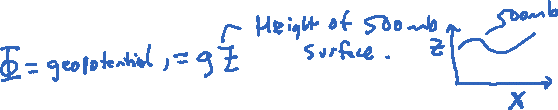 Φ = geopotential, = g Z
Height of 500mb
surface.
500mb
Z
X